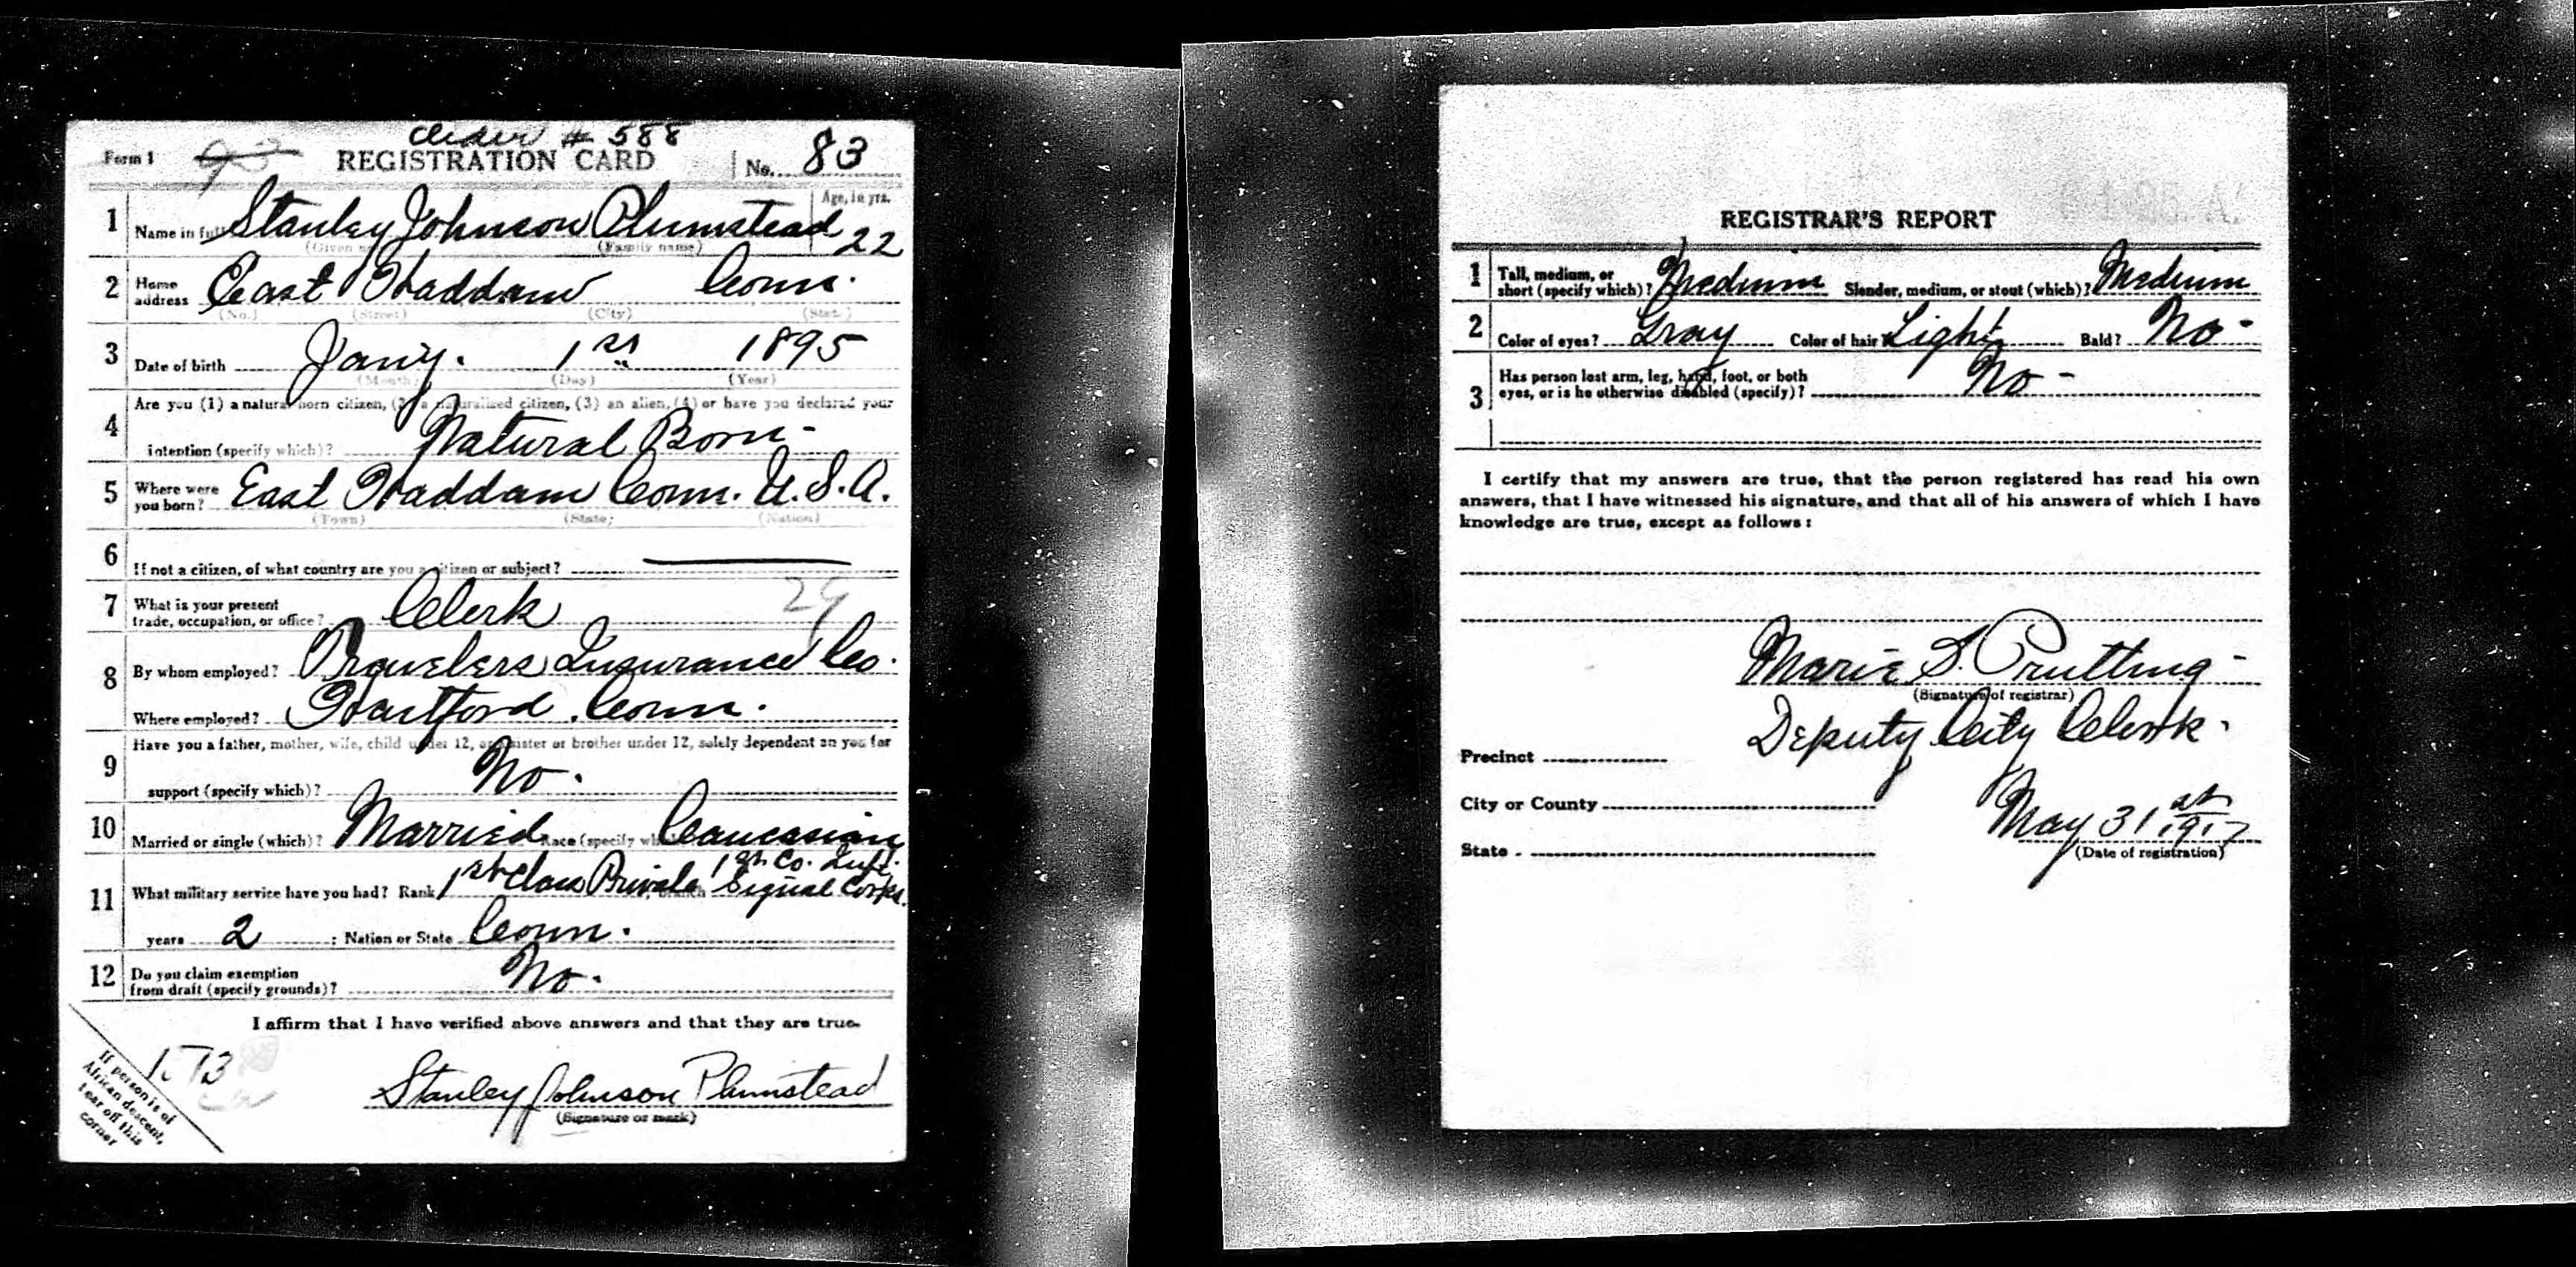 Order # 588
Form 1 93 REGISTRATION CARD No. 83
1 Name in full Stanley Johnson Plumstead Age, in yrs. 22
(Given name) (Family name)
2 Home address East Haddam Conn.
(No.) (Street) (City) (State)
3 Date of birth Jan'y. 1st 1895
(Month) (Day) (Year)
4 Are you (1) a natural born citizen, (2) a naturalized citizen, (3) an alien, (4) or have you declared your
intention (specify which)? Natural Born -
5 Where were you born? East Haddam Conn. U.S.A.
(Town) (State) (Nation)
6 If not a citizen, of what country are you a citizen or subject?
7 What is your present trade, occupation, or office? Clerk 29
8 By whom employed? Travelers Insurance Co.
Where employed? Hartford. Conn.
9 Have you a father, mother, wife, child under 12, or sister or brother under 12, solely dependent on you for
support (specify which)? No.
10 Married or single (which)? Married Race (specify which)? Caucasian
11 What military service have you had? Rank 1st Class Private, branch 1st Co. Signal Corps.
years 2; Nation or State Conn.
12 Do you claim exemption from draft (specify grounds)? No.
I affirm that I have verified above answers and that they are true.
Stanley Johnson Plumstead
(Signature or mark)
If person is of
African descent,
tear off this
corner
REGISTRAR'S REPORT
1 Tall, medium, or short (specify which)? Medium Slender, medium, or stout (which)? Medium
2 Color of eyes? Gray Color of hair? Light Bald? No -
3 Has person lost arm, leg, hand, foot, or both
eyes, or is he otherwise disabled (specify)? No -
I certify that my answers are true, that the person registered has read his own
answers, that I have witnessed his signature, and that all of his answers of which I have
knowledge are true, except as follows:
Marie S. Prutting -
(Signature of registrar)
Deputy City Clerk.
Precinct
City or County
May 31st 1917
State
(Date of registration)